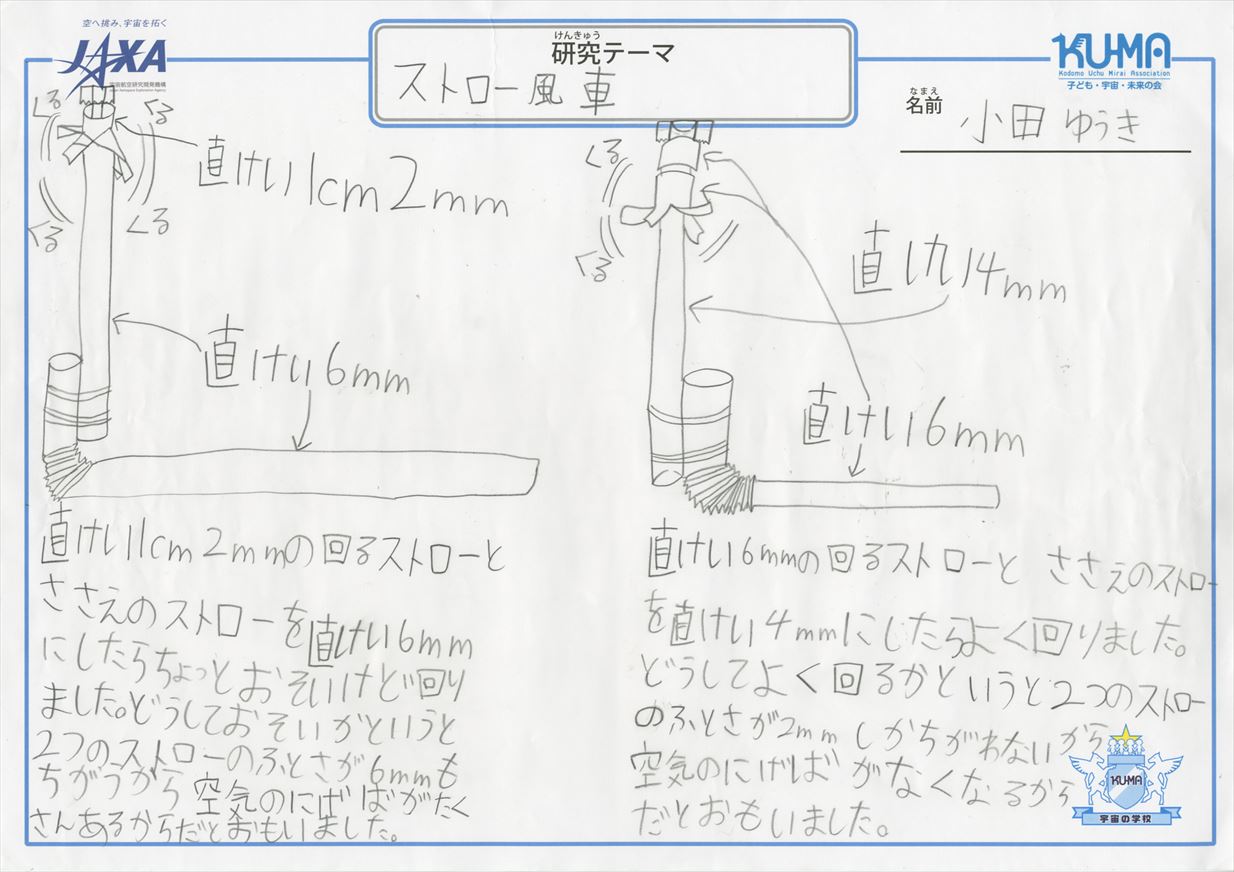 空へ挑み、宇宙を拓く
JAXA
宇宙航空研究開発機構
Japan Aerospace Exploration Agency
けんきゅう
研究テーマ
ストロー風車
KU-MA
Kodomo Uchu Mirai Association
子ども・宇宙・未来の会
なまえ
名前
小田 ゆうき
くる
くる
くる
くる
直けい1cm2mm
直けい6mm
くる
くる
直けい4mm
直けい6mm
直けい1cm2mmの回るストローと
ささえのストローを直けい6mm
にしたらちょっとおそいけど回り
ました。どうしておそいかというと
2つのストローのふとさが6mmも
ちがうから空気のにげばがたく
さんあるからだとおもいました。
直けい6mmの回るストローと ささえのストロー
を直けい4mmにしたらよく回りました。
どうしてよく回るかというと2つのストロー
のふとさが2mmしかちがわないから
空気のにげばがなくなるから
だとおもいました。
KUMA
宇宙の学校